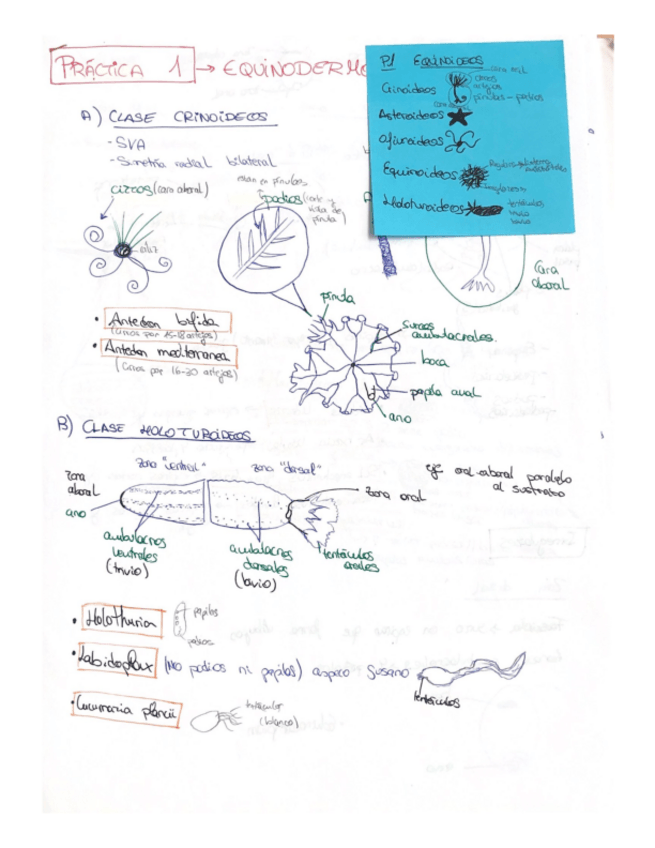 PRÁCTICA 1 → EQUINODERMO
P1 EQUINOIDEOS
cara oral
cirros
artejos
pínnulas - podios
Crinoideos
Asteroideos
Ofiuroideos
Equinoideos
Holoturoideos
tentáculos
trivio
bivio
A) CLASE CRINOÍDEOS
- SVA
- Simetría radial bilateral
cirros (cara aboral)
cáliz
están en pínnulas
podios (
pínnula)
Cara
aboral
pínnula
surcos
ambulacrales.
boca
papila anal
ano
• Antedon bifida
(cirros por 15-18 artejos)
• Antedon mediterranea
(cirros por 16-30 artejos)
B) CLASE HOLOTUROÍDEOS
zona "ventral"
zona "dorsal"
eje oral-aboral paralelo
al sustrato
zona
aboral
ano
zona oral
ambulacros
ventrales
(trivio)
ambulacros
dorsales
(bivio)
tentáculos
orales
• Holothuria
papilas
podios
• Labidoplax (No podios ni papilas) aspecto gusano
tentáculos
• Cucumaria plancii
(blanco)